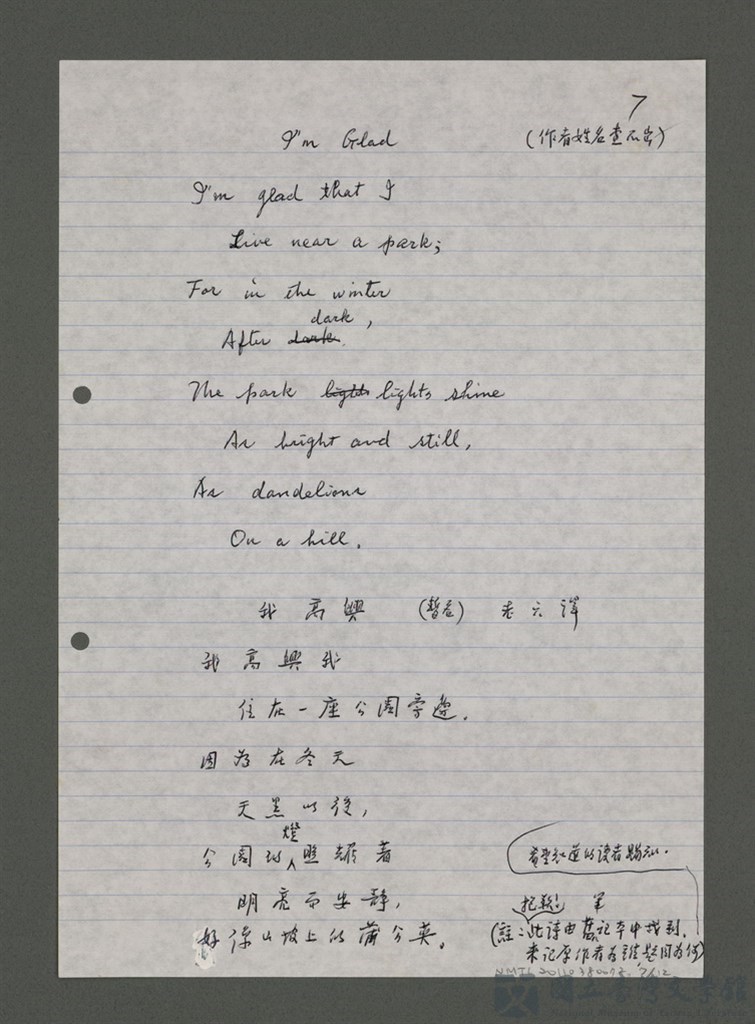 7
I'm Glad (作者姓名查不出)
I'm glad that I
Live near a park;
For in the winter
dark,
After dark.
The park lights lights shine
As bright and still,
As dandelions
On a hill.
我高興 (暫名) 非六譯
我高興我
住在一座公園旁邊.
因為在冬天
天黑以後,
燈
公園的照耀著
明亮而安静,
好像山坡上的蒲公英。
希望知道的读者賜知.
抱歉!
(註:此詩由舊記本中找到,
未記原作者為誰題目為何)
國立臺灣文學館
National Museum of Taiwan Literature